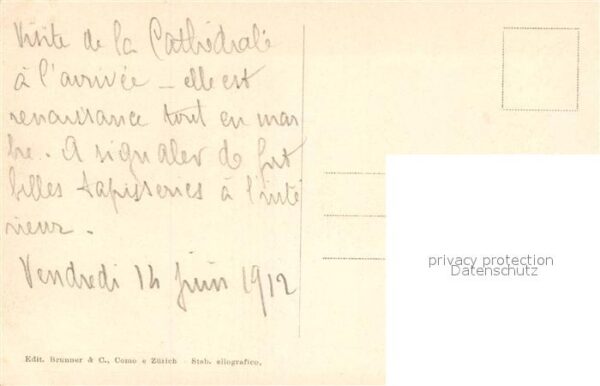 Visite de la Cathédrale
à l'arrivée - elle est
renaissance tout en mar
bre. A signaler de fort
belles tapisseries à l'inté
rieur.
Vendredi 14 Juin 1912
privacy protection
Datenschutz
Edit. Brunner & C., Como e Zürich - Stab. eliografico.